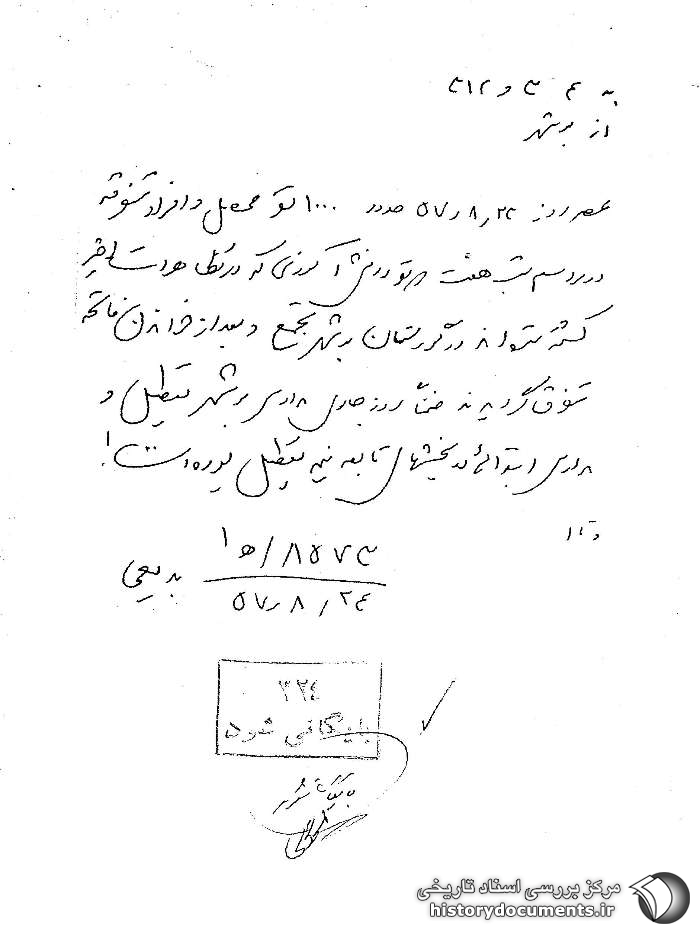 به ۳۴ و ۳۱۲
از بوشهر
عصر روز ۵۷٫۸٫۲۳ حدود ۱۰۰۰ نفر محصل و افراد متفرقه
در مراسم شب هفت که در تظاهرات اخیر
کشته شده اند در گورستان بوشهر تجمع و بعد از خواندن فاتحه
متفرق گردیدند ضمناً روز جاری مدارس بوشهر تعطیل و
مدارس ابتدائی بخشهای تابعه نیز تعطیل بوده است.
۸۵۷۳/ه ۱
بدیعی
۵۷٫۸٫۲۴
۳۲۴
بایگانی شود
بایگانی شود
مرکز بررسی اسناد تاریخی
historydocuments.ir